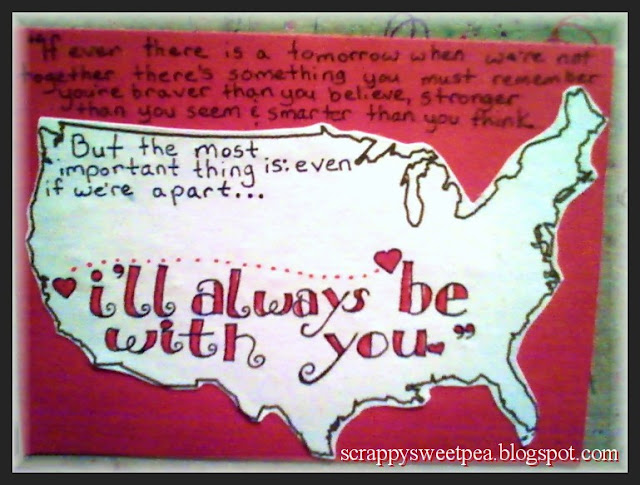 "If even there is a tomorrow when we're not
together there's something you must remember
you're braver than you believe, stronger
than you seem & smarter than you think
But the most
important thing is: even
if we're apart...
i'll always be
with you."
scrappysweetpea.blogspot.com